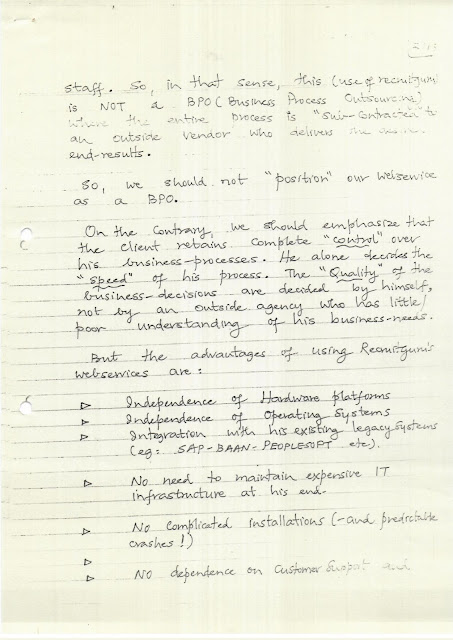 staff. So, in that sense, this (use of recruitguru
is NOT a BPO (Business Process Outsourcing)
where the entire process is "sub-contracted" to
an outside vendor who delivers the
end-results.
So, we should not "position" our webservice
as a BPO.
On the contrary, we should emphasize that
the client retains complete "control" over
his business-processes. He alone decides the
"speed" of his process. The "Quality" of the
business-decisions are decided by himself,
not by an outside agency who has little/
poor understanding of his business-needs.
But the advantages of using Recruitguru's
webservices are :
▷ Independence of Hardware platforms
▷ Independence of Operating Systems
▷ Integration with his existing legacy systems
(eg: SAP-BAAN-PEOPLESOFT etc).
▷ No need to maintain expensive IT
infrastructure at his end.
▷ No complicated installations (-and predictable
crashes!)
▷
▷ NO dependence on Customer Support and